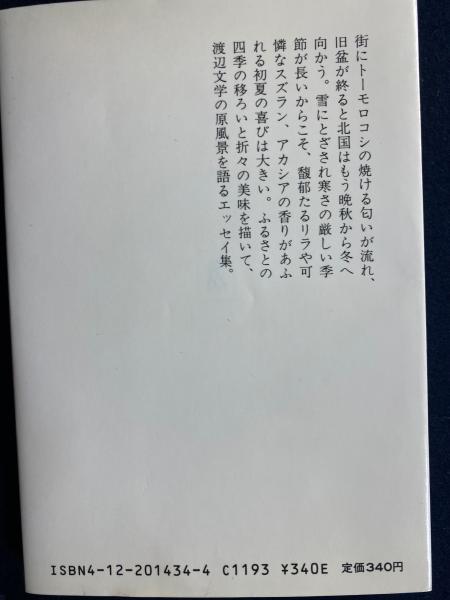 街にトーモロコシの焼ける匂いが流れ、
旧盆が終ると北国はもう晩秋から冬へ
向かう。雪にとざされ寒さの厳しい季
節が長いからこそ、馥郁たるリラや可
憐なスズラン、アカシアの香りがあふ
れる初夏の喜びは大きい。ふるさとの
四季の移ろいと折々の美味を描いて、
渡辺文学の原風景を語るエッセイ集。
ISBN4-12-201434-4 C1193 ¥340E 定価340円